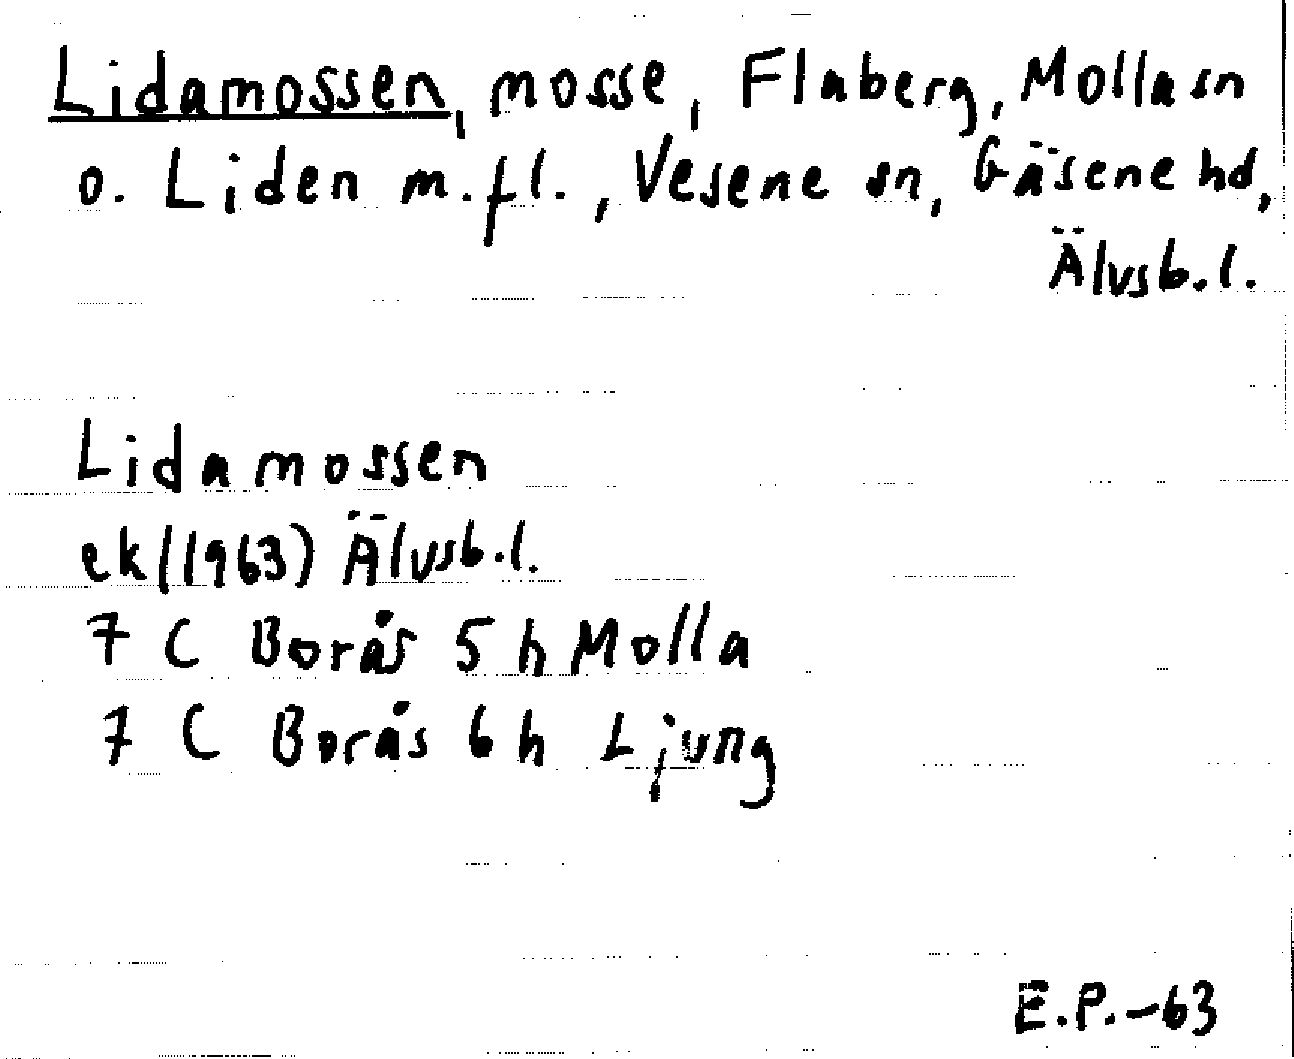 Lidamossen, mosse, Flaberg, Molla sn
o. Liden m.fl., Vesene sn, Gäsene hd,
Älvsb.l.
Lidamossen
ek (1963) Älvsb.l.
7 C Borås 5 h Molla
7 C Borås 6 h Ljung
E.P.-63